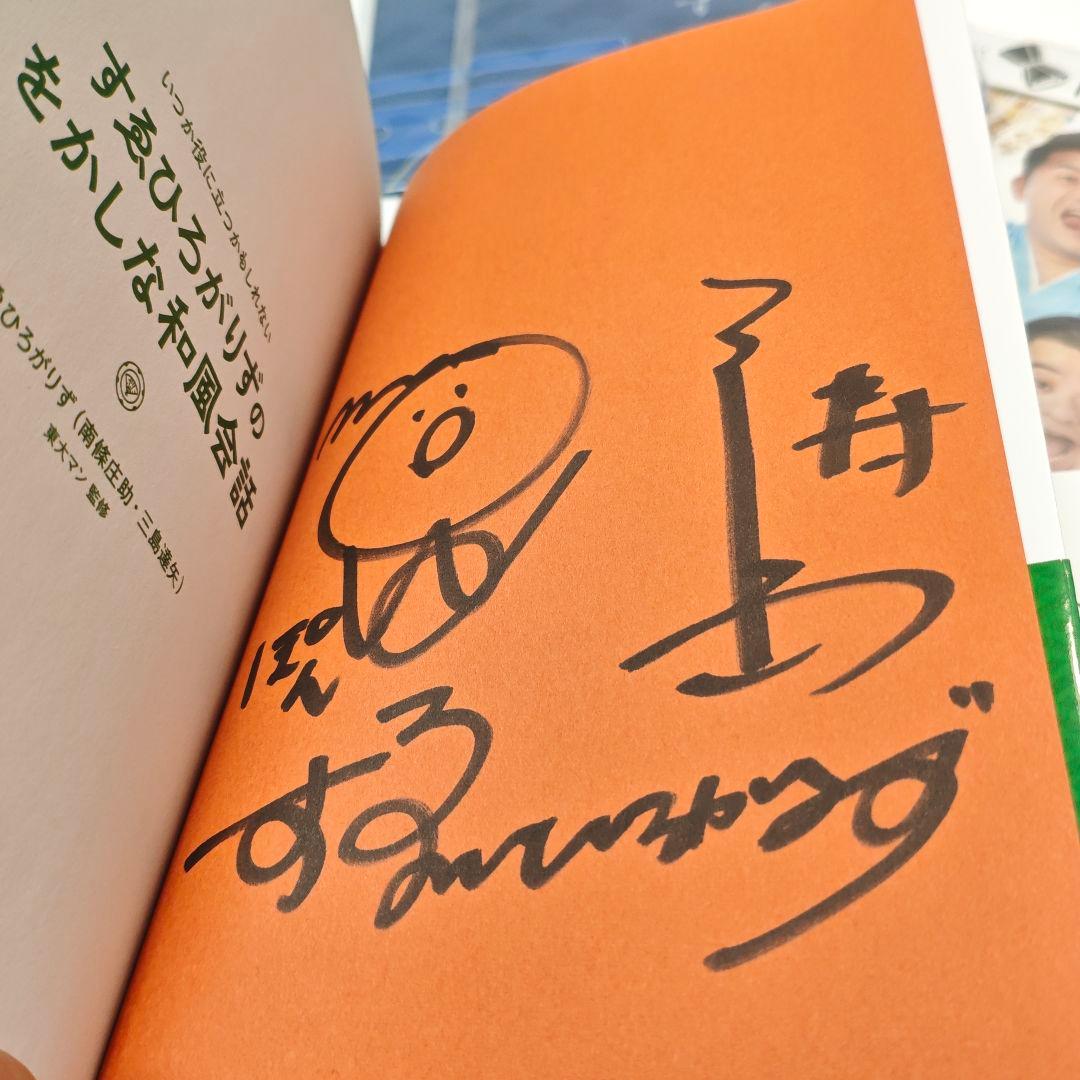 いつか役に立つかもしれない
すゑひろがりずの
をかしな和風会話
すゑひろがりず(南條庄助・三島達矢)
東大マン 監修
寿
ぽん
すゑひろがりず